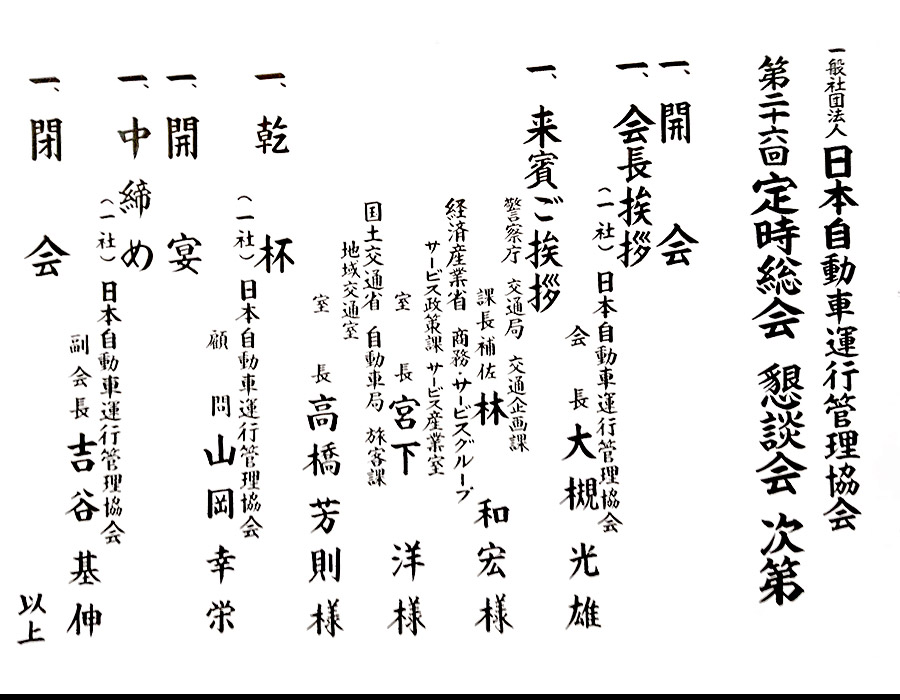 一般社団法人日本自動車運行管理協会
第二十六回定時総会 懇談会 次第
一、開会
一、会長挨拶
(一社)日本自動車運行管理協会
会長 大槻光雄
一、来賓ご挨拶
警察庁 交通局 交通企画課
課長補佐 林和宏様
経済産業省 商務・サービスグループ
サービス政策課 サービス産業室
室長 宮下洋様
国土交通省 自動車局 旅客課
地域交通室
室長 高橋芳則様
一、乾杯
(一社)日本自動車運行管理協会
顧問 山岡幸栄
一、開宴
一、中締め
(一社)日本自動車運行管理協会
副会長 吉谷基伸
一、閉会
以上